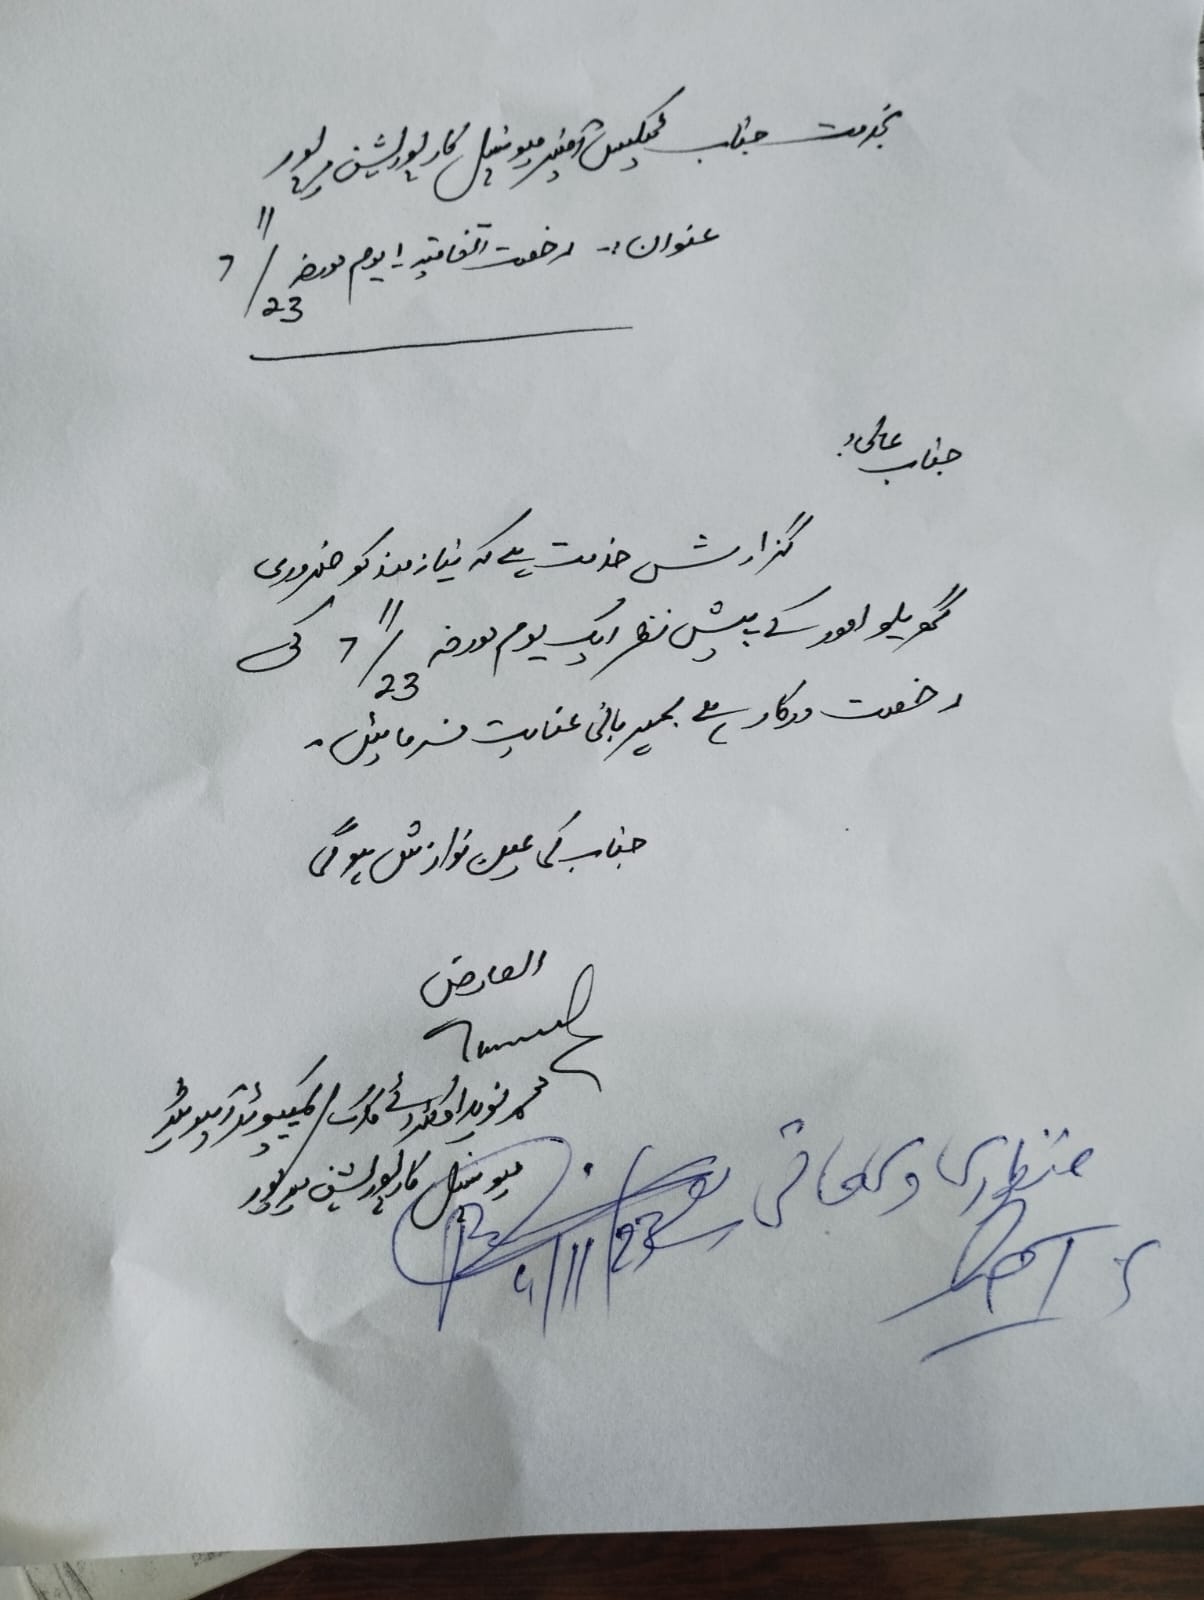 بخدمت جناب ٹیکسیشن آفیسر میونسپل کارپوریشن میرپور
عنوان:- رخصت اتفاقیہ 1 یوم مورخہ 7/11/23
جناب عالی!
گذارش خدمت ہے کہ نیازمند کو ضروری
گھریلو امور کے پیش نظر ایک یوم مورخہ 7/11/23 کی
رخصت درکار ہے بمہربانی عنایت فرمائیں۔
جناب کی عین نوازش ہوگی
العارض
محمد نوید کلرک / کمپیوٹر آپریٹر
میونسپل کارپوریشن میرپور
منظوری دی جاتی
/11/23